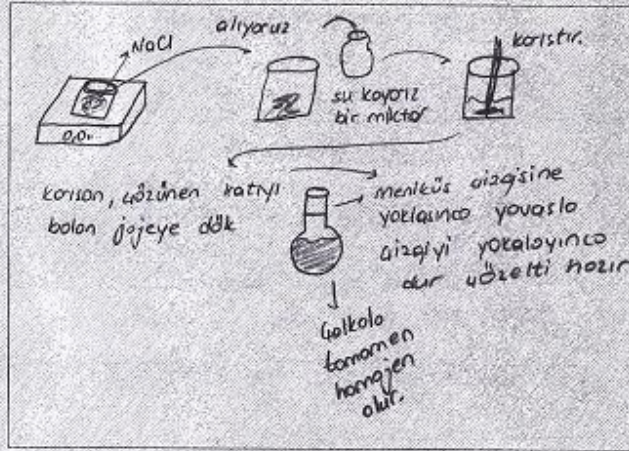 NaCl
alıyoruz
0,0..
su koyarız
bir miktar
karıştır.
karışan, çözünen katıyı
balon jojeye dök
menisküs çizgisine
yaklaşınca yavaşla
çizgiyi yakalayınca
dur çözelti hazır
çalkala
tamamen
homojen
olur.